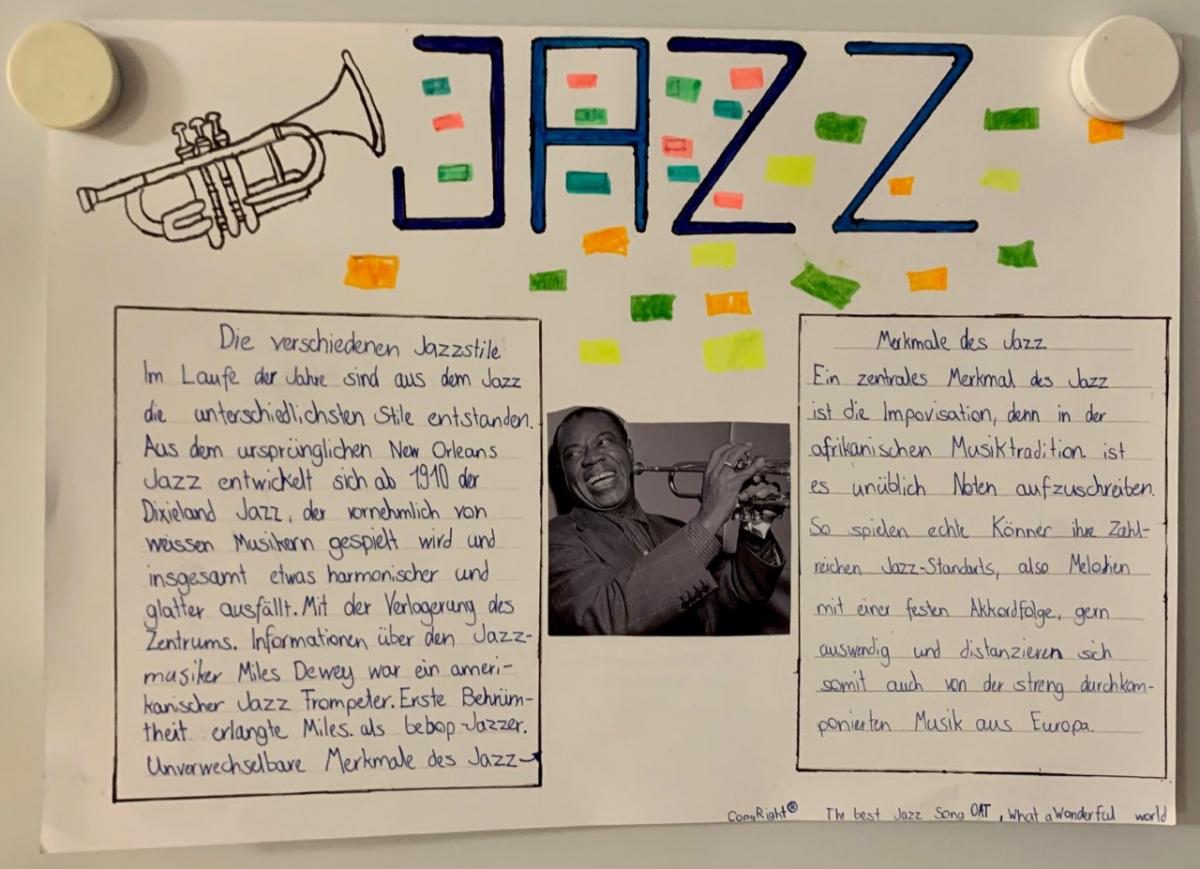 JAZZ
Die verschiedenen Jazzstile
Im Laufe der Jahre sind aus dem Jazz
die unterschiedlichsten Stile entstanden.
Aus dem ursprünglichen New Orleans
Jazz entwickelt sich ab 1910 der
Dixieland Jazz, der vornehmlich von
weissen Musikern gespielt wird und
insgesamt etwas harmonischer und
glatter ausfällt. Mit der Verlagerung des
Zentrums. Informationen über den Jazz-
musiker Miles Dewey war ein ameri-
kanischer Jazz Trompeter. Erste Behrüm-
theit erlangte Miles. als bebop-Jazzer.
Unverwechselbare Merkmale des Jazz→
Merkmale des Jazz
Ein zentrales Merkmal des Jazz
ist die Impovisation, denn in der
afrikanischen Musiktradition. ist
es unüblich Noten aufzuschreiben.
So spielen echte Könner ihre Zahl-
reichen Jazz-Standarts, also Melodien
mit einer festen Akkordfolge, gern
auswendig und distanzieren sich
somit auch von der streng durchkom-
ponierten Musik aus Europa.
CopyRight® The best Jazz Song OAT, What a Wonderful world